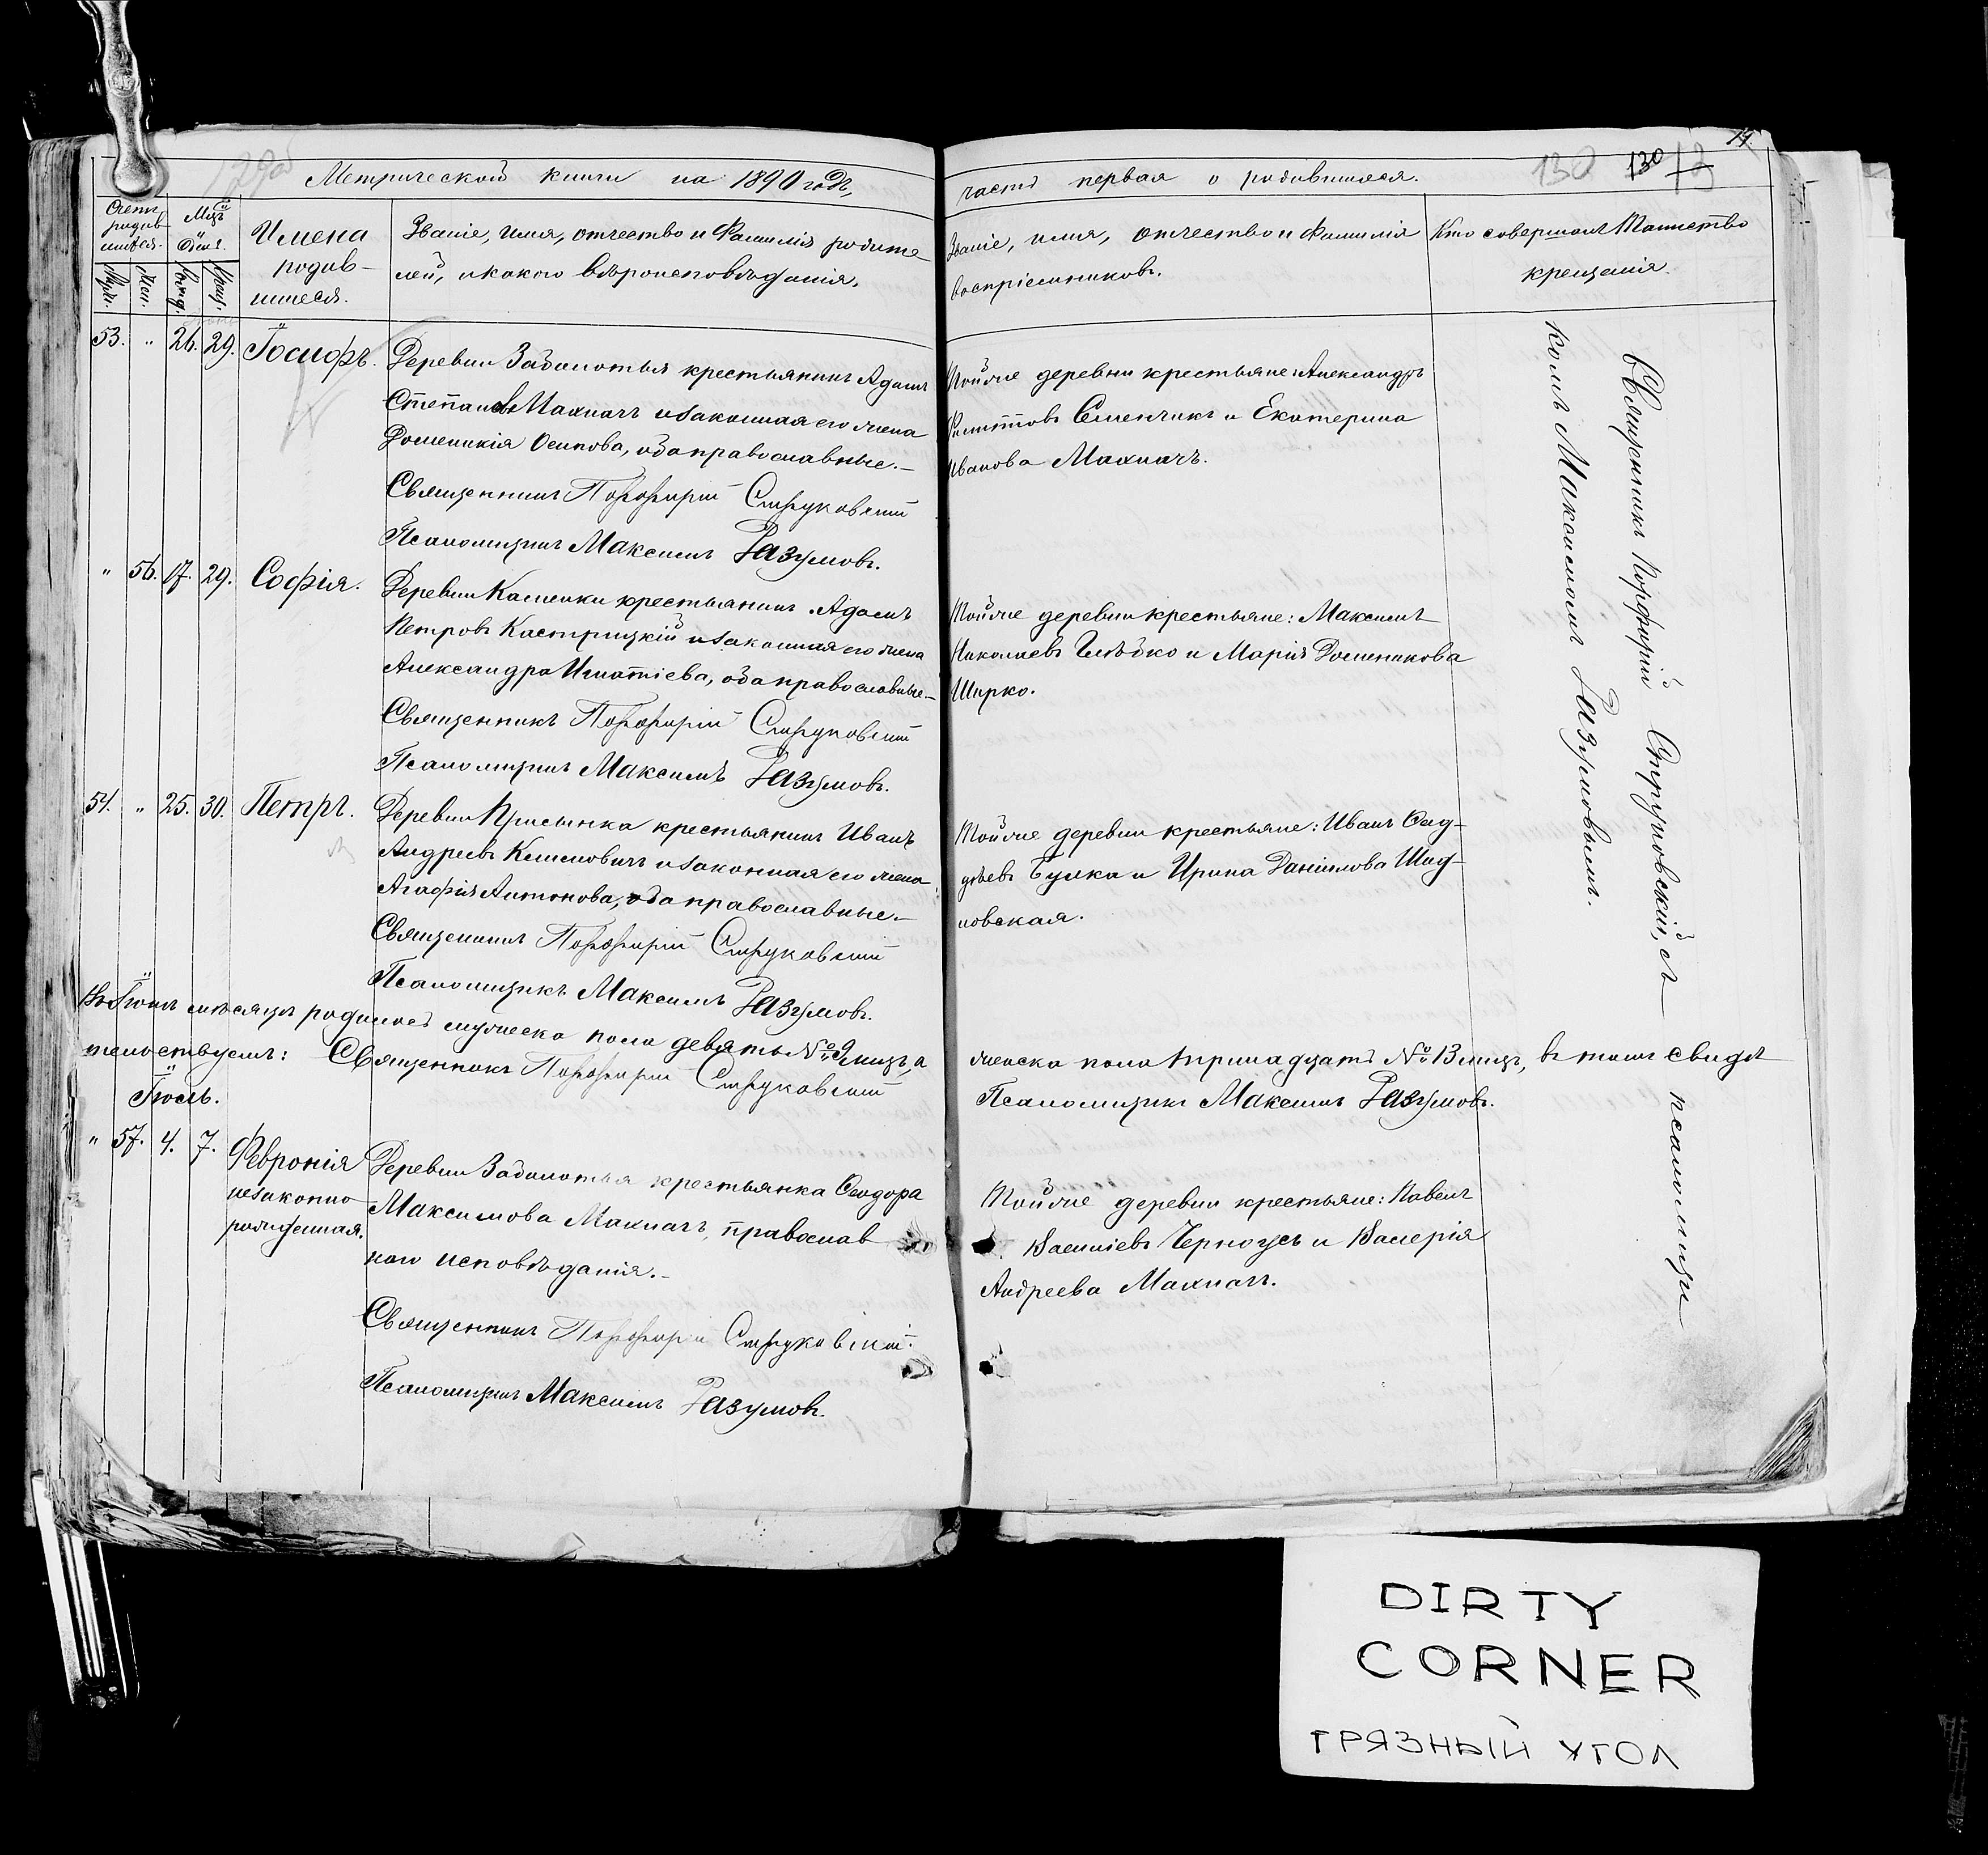 Метрической книги на 1890 годъ,
часть первая о родившихся.
130 130 13
14.
Счетъ родив-
шихся.
Муж.
Жен.
Мцъ и День.
Рожд.
Крещ.
Имена
родив-
шихся.
Званіе, имя, отчество и Фамилія родите
лей, и какого вѣроисповѣданія.
Званіе, имя, отчество и Фамилія
воспріемниковъ.
Кто совершалъ Таинство
крещенія.
53. " 26. 29. Іосифъ.
Деревни Заболотья крестьянинъ Адамъ
Степановъ Махначъ и законная его жена
Доменикія Осипова, оба православные.—
Священникъ Порфирій Струковскій
Псаломщикъ Максимъ Разумовъ.
Тойже деревни крестьяне: Александръ
Филипповъ Семенчикъ и Екатерина
Иванова Махначъ.
" 56. 17. 29. Софія.
Деревни Каменки крестьянинъ Адамъ
Петровъ Кастрицкій и законная его жена
Александра Игнатіева, оба православные.—
Священникъ Порфирій Струковскій
Псаломщикъ Максимъ Разумовъ.
Тойже деревни крестьяне: Максимъ
Николаевъ Глѣбко и Марія Доменикова
Ширко.
54. " 25. 30. Петръ.
Деревни Присынка крестьянинъ Иванъ
Андреевъ Климовичъ и законная его жена
Агафія Антонова, оба православные.—
Священникъ Порфирій Струковскій
Псаломщикъ Максимъ Разумовъ.
Тойже деревни крестьяне: Иванъ Фад-
дѣевъ Булка и Ирина Даніилова Шид-
ловская.
Въ Іюнѣ мѣсяцѣ родилось мужеска пола девять № 9 лицъ, а
женска пола тринадцать № 13 лицъ, въ томъ свидѣ
тельствуемъ: Священникъ Порфирій Струковскій
Псаломщикъ Максимъ Разумовъ.
Іюль.
" 57. 4. 7. Февронія
незаконно
рожденная.
Деревни Заболотья крестьянка Ѳеодора
Максимова Махначъ, православ
наго исповѣданія.—
Священникъ Порфирій Струковскій.
Псаломщикъ Максимъ Разумовъ.
Тойже деревни крестьяне: Павелъ
Васильевъ Черноусъ и Валерія
Андреева Махначъ.
Священникъ Порфирій Струковскій, съ псаломщи
комъ Максимомъ Разумовымъ.
DIRTY
CORNER
ГРЯЗНЫЙ УГОЛ